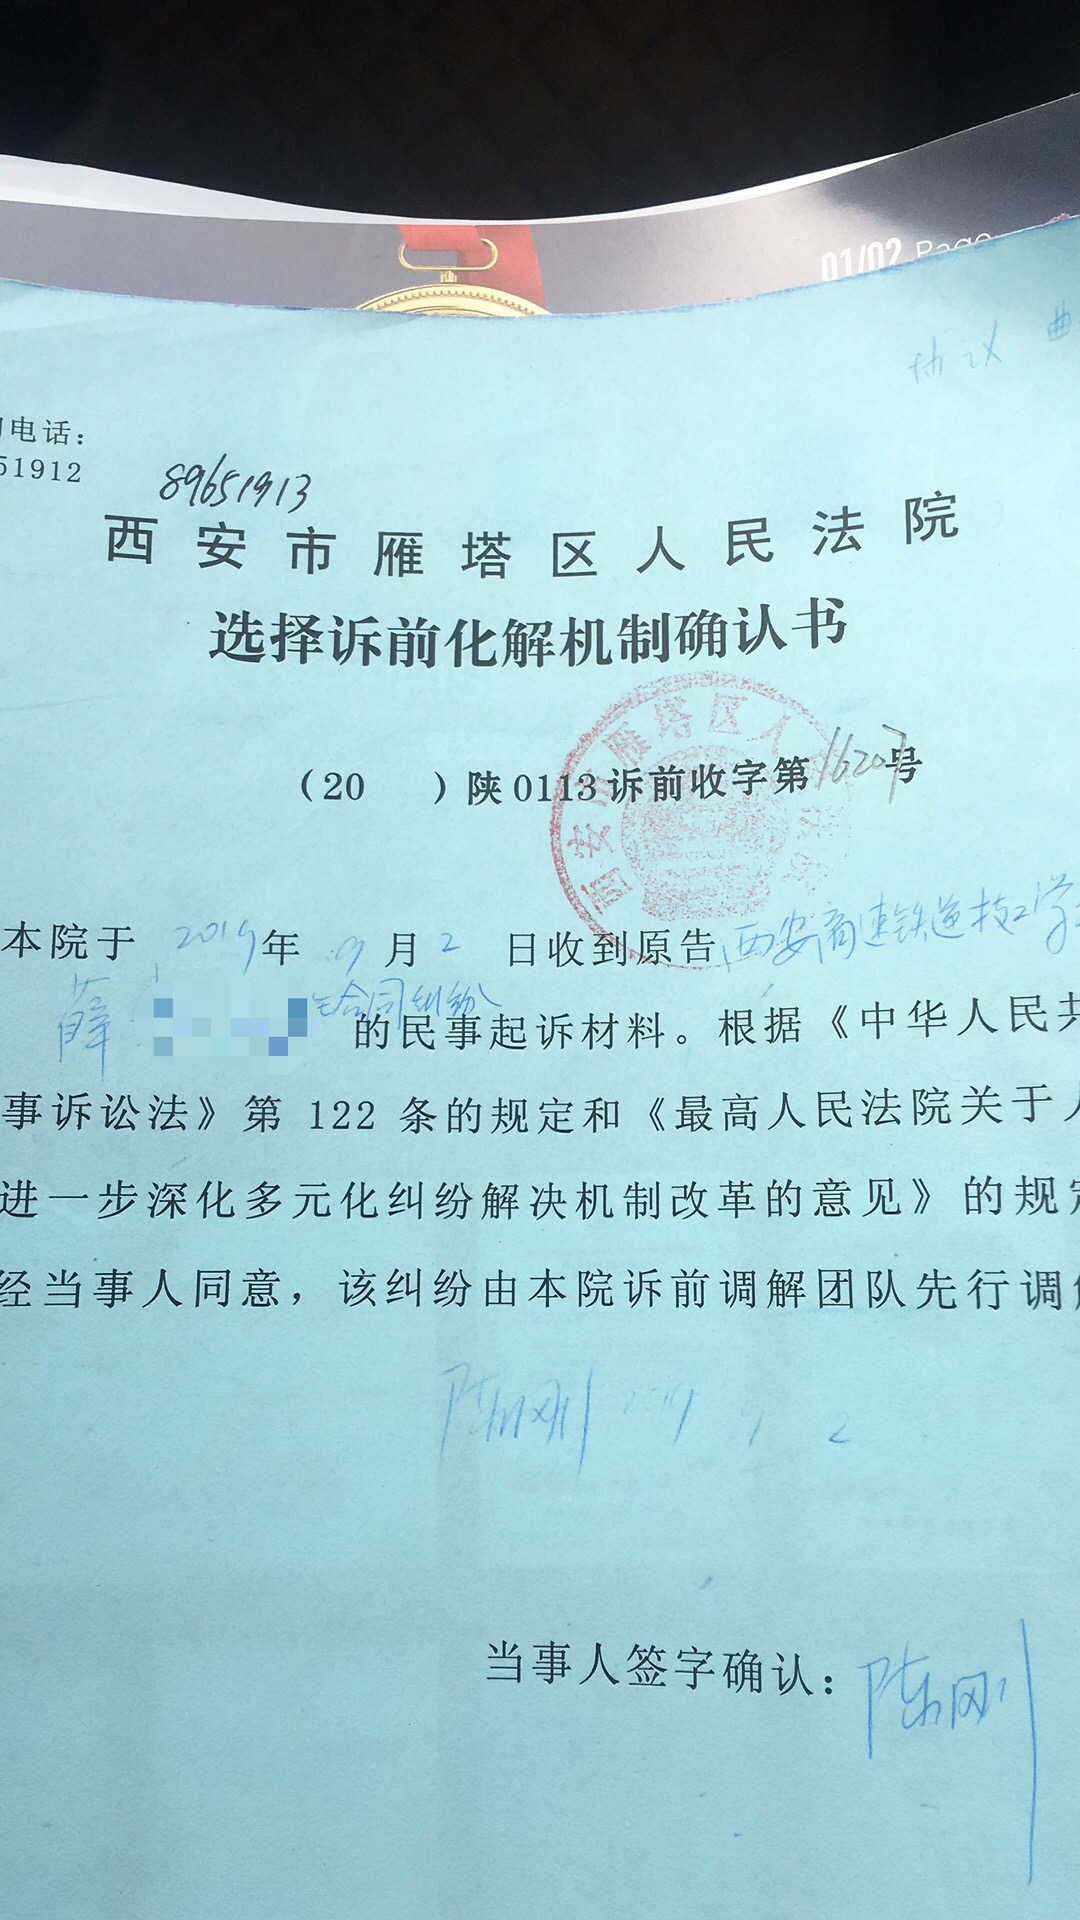 01/02 Page
协议
电话：
51912
89651913
西安市雁塔区人民法院
选择诉前化解机制确认书
（20　）陕0113诉前收字第16207号
西安市雁塔区人
本院于2019年9月2日收到原告西安高速铁道技工学
薛 合同纠纷的民事起诉材料。根据《中华人民共
事诉讼法》第122条的规定和《最高人民法院关于人
进一步深化多元化纠纷解决机制改革的意见》的规定
经当事人同意，该纠纷由本院诉前调解团队先行调解
陈刚 2019 9 2
当事人签字确认：陈刚